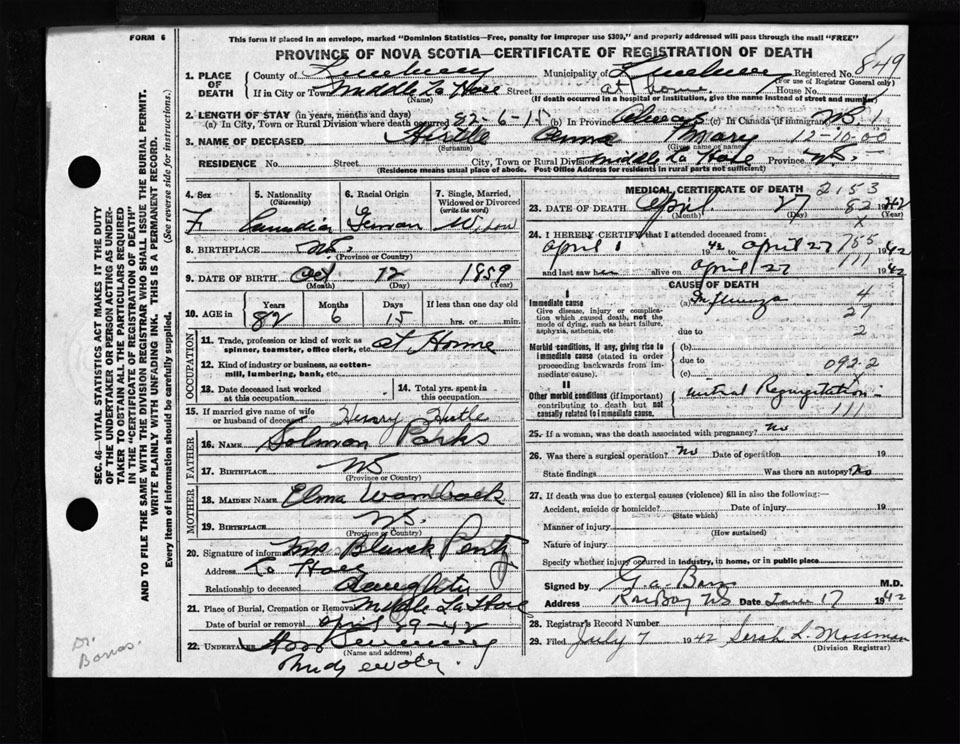 FORM 6
This form if placed in an envelope, marked "Dominion Statistics—Free, penalty for improper use $300," and properly addressed will pass through the mail "FREE"
PROVINCE OF NOVA SCOTIA—CERTIFICATE OF REGISTRATION OF DEATH
SEC. 46—VITAL STATISTICS ACT MAKES IT THE DUTY
OF THE UNDERTAKER OR PERSON ACTING AS UNDER-
TAKER TO OBTAIN ALL THE PARTICULARS REQUIRED
IN THE "CERTIFICATE OF REGISTRATION OF DEATH"
AND TO FILE THE SAME WITH THE DIVISION REGISTRAR WHO SHALL ISSUE THE BURIAL PERMIT.
WRITE PLAINLY WITH UNFADING INK. THIS IS A PERMANENT RECORD.
Every item of Information should be carefully supplied. (See reverse side for instructions.)
1. PLACE OF DEATH
County of Municipality of Registered No. 849
(For use of Registrar General only)
If in City or Town Middle La Have Street at home. House No.
(Name) (If death occurred in a hospital or institution, give the name instead of street and number)
2. LENGTH OF STAY (in years, months and days)
(a) In City, Town or Rural Division where death occurred 82-6-15 (b) In Province Always (c) In Canada (if immigrant)
3. NAME OF DECEASED Hirtle Anna Mary 12-10-00
(Surname) (Given name or names)
RESIDENCE No. Street City, Town or Rural Division Middle La Have Province N.S.
(Residence means usual place of abode. Post Office Address for residents in rural parts not sufficient)
4. Sex
F
5. Nationality
(Citizenship)
Canadian
6. Racial Origin
German
7. Single, Married,
Widowed or Divorced
(write the word)
Widow
8. BIRTHPLACE N.S.
(Province or Country)
9. DATE OF BIRTH Oct 12 1859
(Month) (Day) (Year)
10. AGE in
Years Months Days If less than one day old
82 6 15 hrs. or min.
OCCUPATION
11. Trade, profession or kind of work as
spinner, teamster, office clerk, etc. at Home
12. Kind of industry or business, as cotton-
mill, lumbering, bank, etc.
13. Date deceased last worked
at this occupation
14. Total yrs. spent in
this occupation
15. If married give name of wife
or husband of deceased Henry Hirtle
FATHER
16. NAME Solomon Parks
17. BIRTHPLACE NS
(Province or Country)
MOTHER
18. MAIDEN NAME Elma Wamback
19. BIRTHPLACE N.S.
(Province or Country)
20. Signature of informant Mrs Blanch Pentz
Address La Have
Relationship to deceased daughter
21. Place of Burial, Cremation or Removal Middle La Have
Date of burial or removal April 29-42
22. UNDERTAKER
(Name and address)
MEDICAL CERTIFICATE OF DEATH 2153
23. DATE OF DEATH April 27 82 1942
(Month) (Day) (Year)
24. I HEREBY CERTIFY that I attended deceased from:
x
April 1 42 to April 27 755 1942
111
and last saw her alive on April 27 1942
CAUSE OF DEATH
I
Immediate cause
Give disease, injury or complica-
tion which caused death, not the
mode of dying, such as heart failure,
asphyxia, asthenia, etc
(a) Influenza 4
27
due to 2
Morbid conditions, if any, giving rise to
immediate cause (stated in order
proceeding backwards from im-
mediate cause).
(b)
due to
(c) 092-2
II
Other morbid conditions (if important)
contributing to death but not
causally related to immediate cause.
mitral Regurgitation
111
25. If a woman, was the death associated with pregnancy? No
26. Was there a surgical operation? No Date of operation 19
State findings Was there an autopsy? No
27. If death was due to external causes (violence) fill in also the following:—
Accident, suicide or homicide? Date of injury 19
(State which)
Manner of injury
(How sustained)
Nature of injury
Specify whether injury occurred in industry, in home, or in public place
Signed by M.D.
Address Rose Bay NS Date June 17 1942
28. Registrar's Record Number
29. Filed July 7 1942 Sarah L. Mossman
(Division Registrar)
Dr.